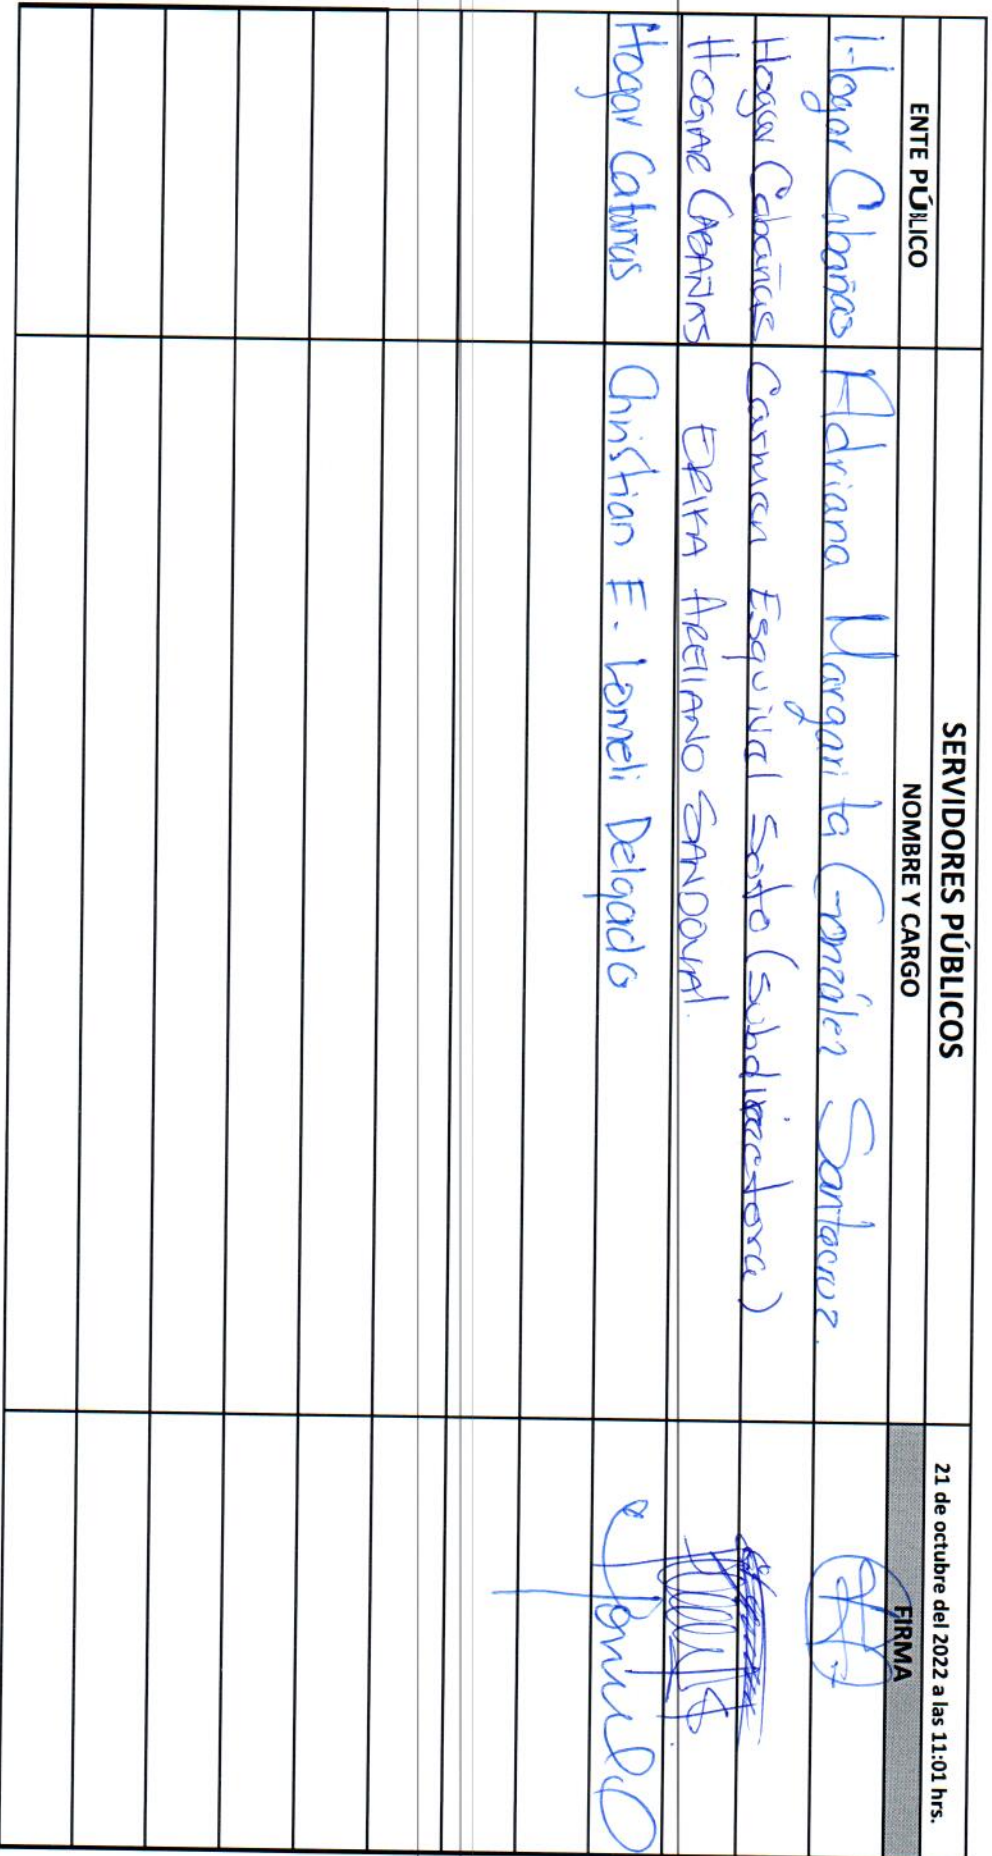 SERVIDORES PÚBLICOS 21 de octubre del 2022 a las 11:01 hrs.
ENTE PÚBLICO NOMBRE Y CARGO FIRMA
Hogar Cabañas Adriana Margarita González Santacruz.
Hogar Cabañas Carmen Esquivel Soto (Subdirectora)
HOGAR CABAÑAS ERIKA ARELLANO SANDOVAL.
Hogar Cabañas Christian E. Lomeli Delgado